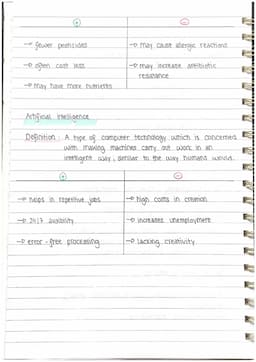 + −
→ fewer pesticides → may cause allergic reactions
→ often cost less → may increase antibiotic
resistance
→ may have more nutrients
Artificial Intelligence
Definition : A type of computer technology which is concerned
with making machines carry out work in an
intelligent way, similar to the way humans would.
+ −
→ helps in repetitive jobs → high costs in creation
→ 24/7 → increases unemployment
→ error-free processing → lacking creativity